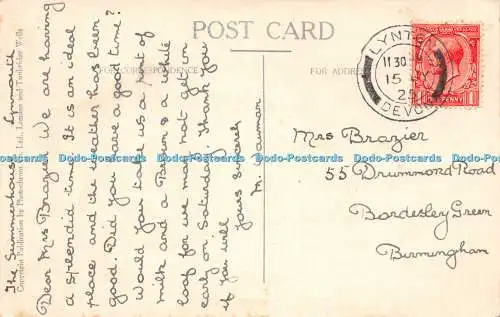 POST CARD
FOR CORRESPONDENCE
FOR ADDRESS
The Summerhouse Lynmouth
Copyright Publication by Photochrom Co. Ltd., London and Tunbridge Wells
Dear Mrs Brazier. We are having
a splendid time. It is an ideal
place and the weather has been
good. Did you have a good time?
Would you take us a pint of
milk and a Bermaline & a white
loaf for we may not get in
early on Saturday. Thank you
if you will
yours sincerely
M.
Mrs Brazier
55 Drummond Road
Bordesley Green
Birmingham
LYNTON
11 30
15
25
DEVON
ONE PENNY
Dodo-Postcards Dodo-Postcards Dodo-Postcards Dodo-Postcards Dodo-Postcards Dodo-Postcards Dodo-Postcards